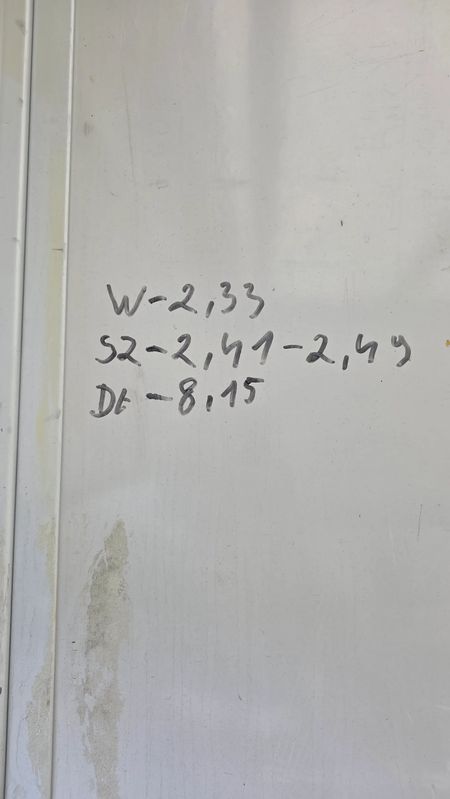 W-2,33
SZ-2,41-2,49
Dł-8,15